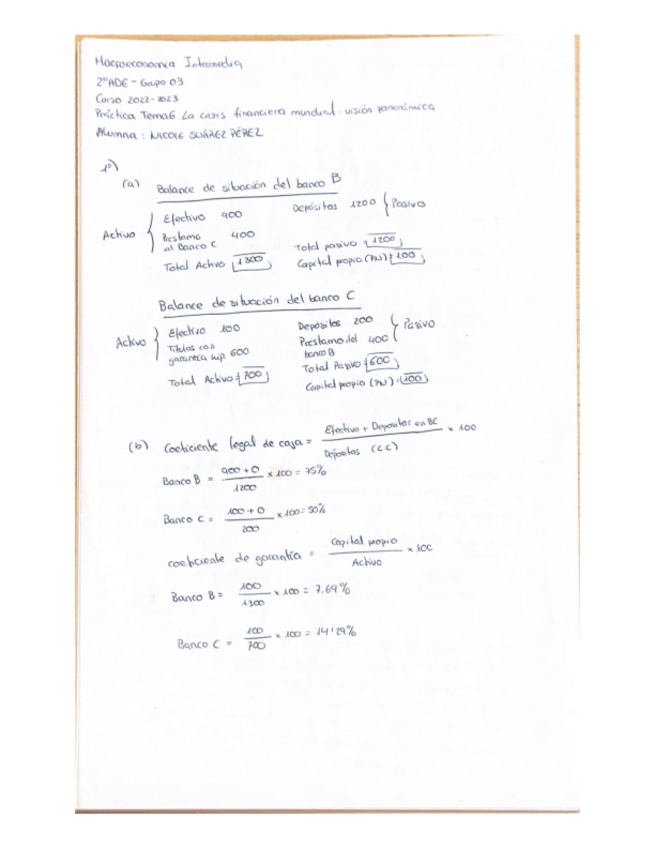 Macroeconomía Intermedia
2º ADE - Grupo 03
Curso 2022-2023
Práctica Tema 6. La crisis financiera mundial: visión panorámica
Alumna: NICOLE SUÁREZ PÉREZ
1º)
(a) Balance de situación del banco B
Activo { Efectivo 900 Depósitos 1200 } Pasivo
Préstamo al Banco C 400 Total pasivo 1200
Total Activo 1300 Capital propio (PN) 100
Balance de situación del banco C
Activo } Efectivo 100 Depósitos 200 } Pasivo
Títulos con garantía hip. 600 Préstamo del banco B 400
Total Activo 700 Total Pasivo 600
Capital propio (PN) 100
(b) Coeficiente legal de caja = Efectivo + Depósitos en BC / Depósitos (CC) × 100
Banco B = 900 + 0 / 1200 × 100 = 75%
Banco C = 100 + 0 / 200 × 100 = 50%
coeficiente de garantía = Capital propio / Activo × 100
Banco B = 100 / 1300 × 100 = 7,69%
Banco C = 100 / 700 × 100 = 14'29%